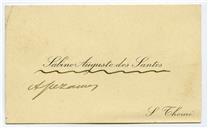 Sabino Augusto dos Santos
A pezames
S. Thomé